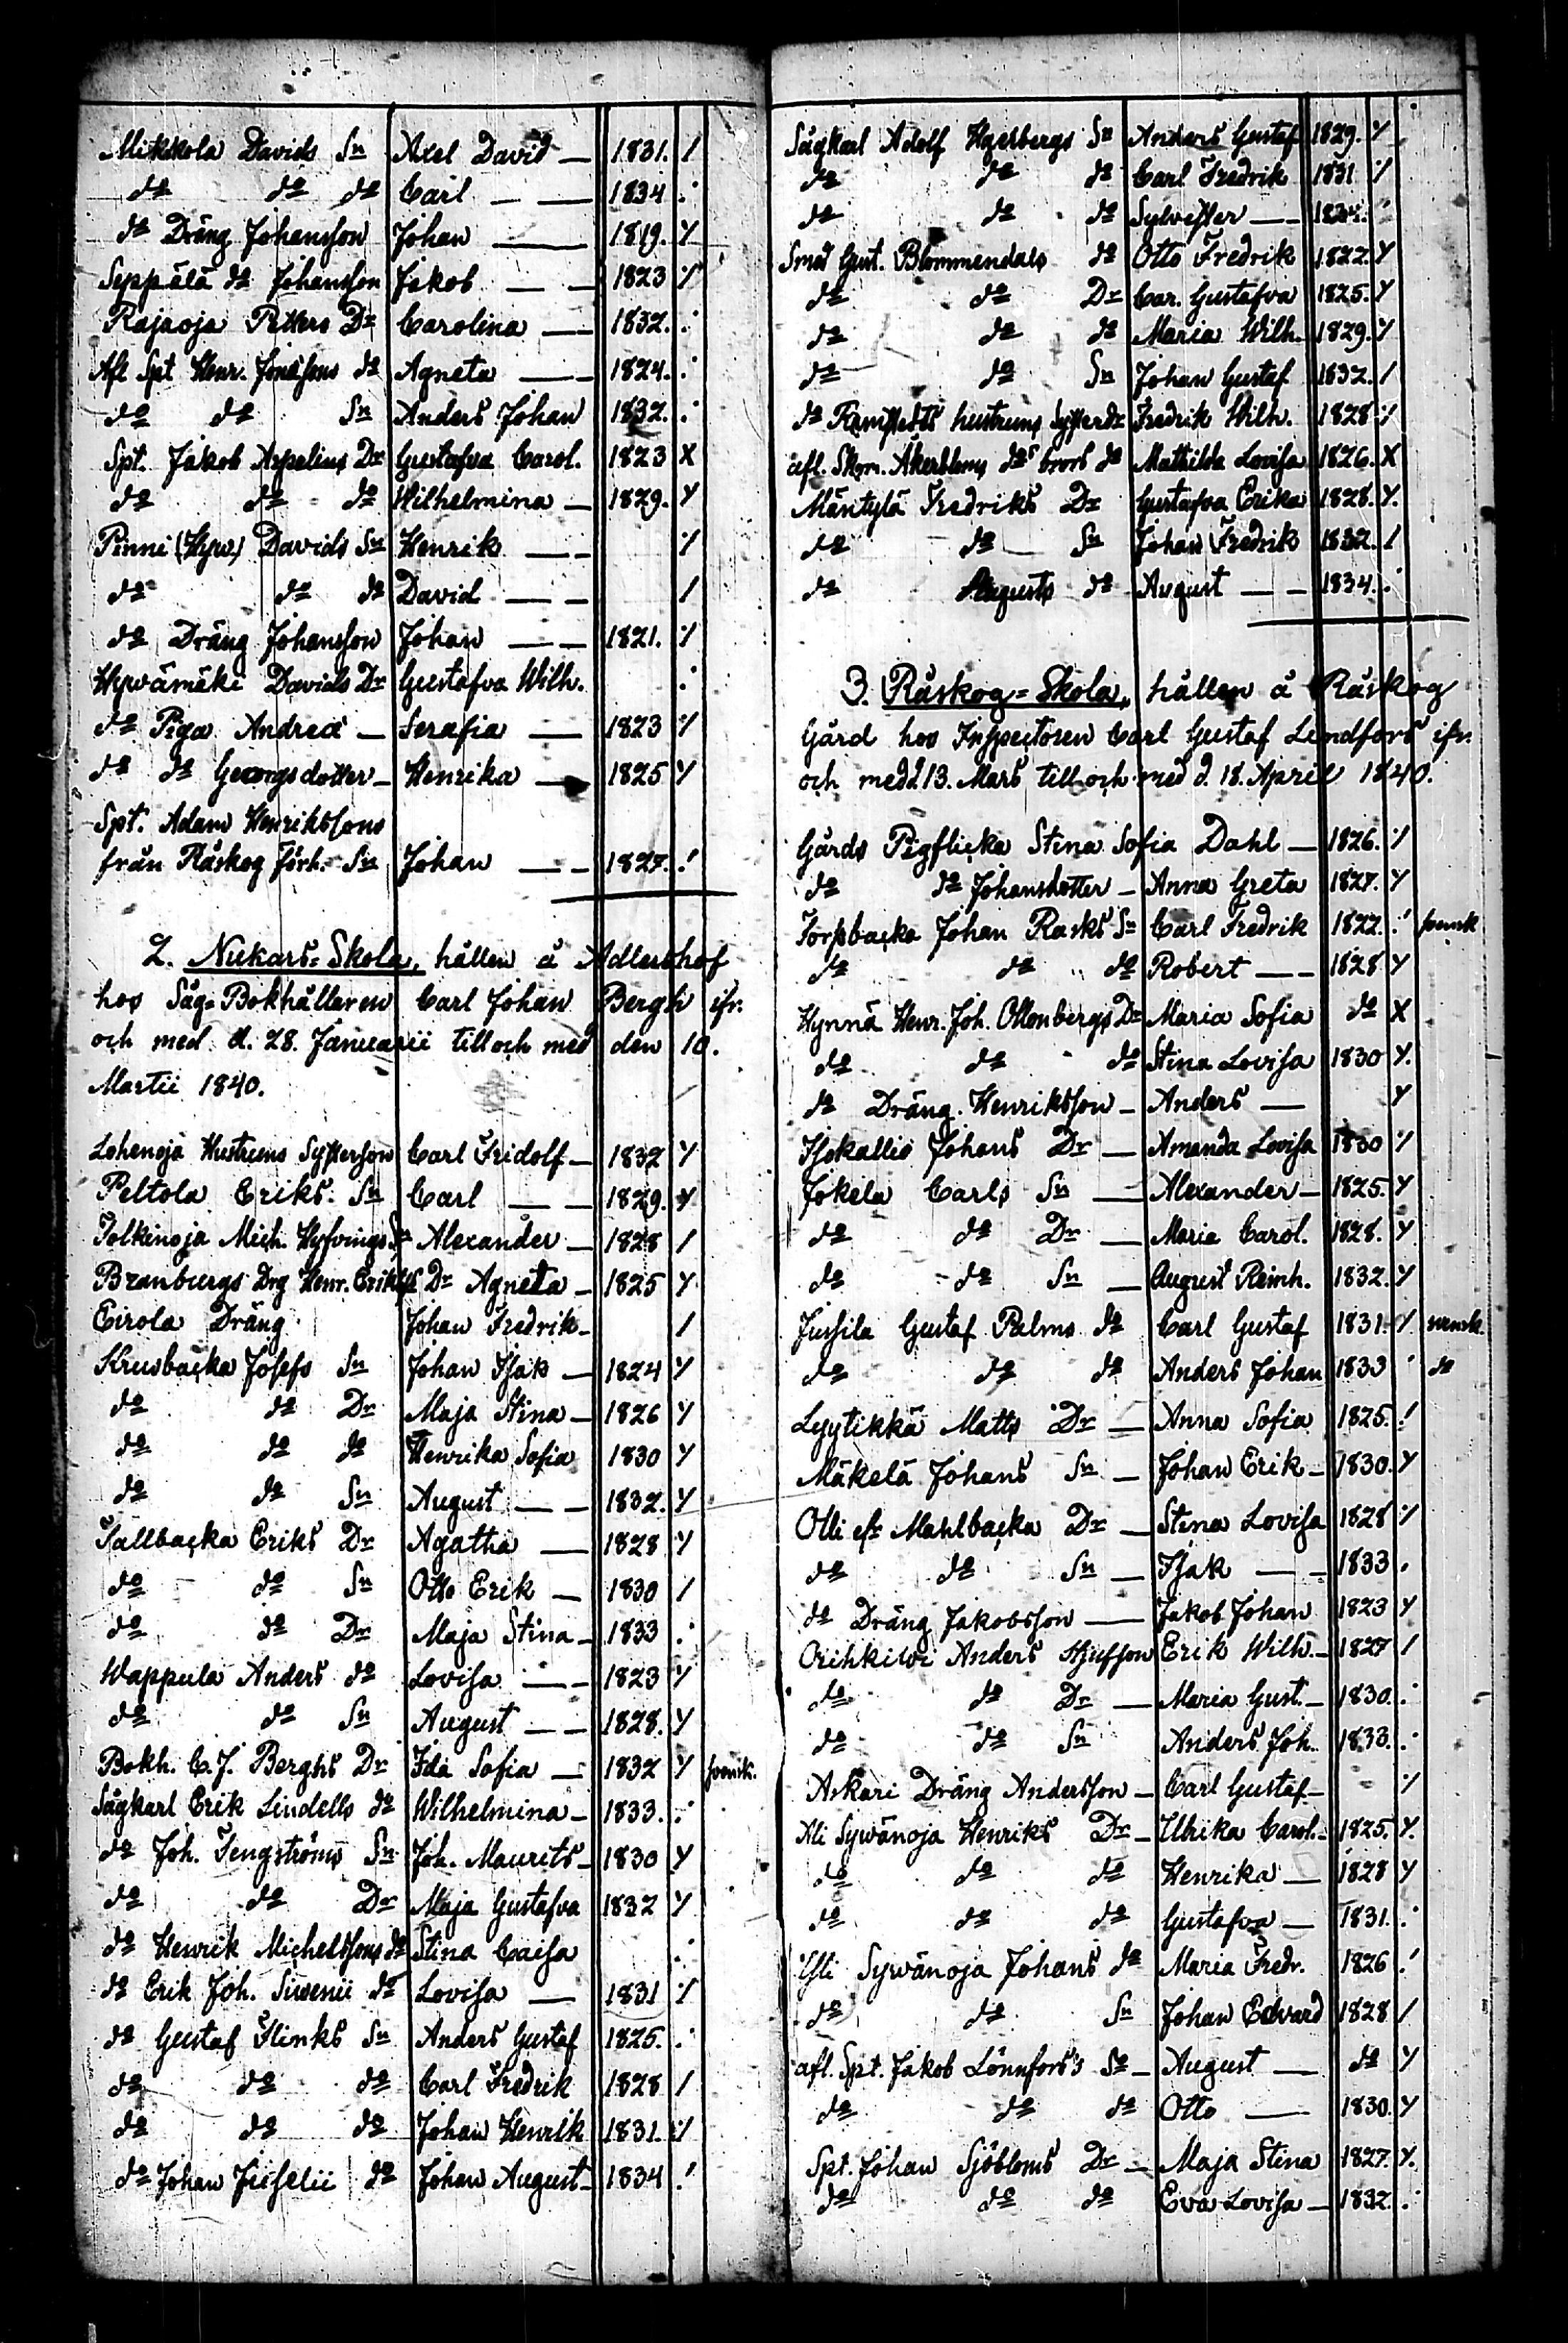 Mikkola Davids Sn Axel David — 1831. /
do do do Carl — — 1834 .
do Dräng Johansson Johan — 1819. Y
Seppälä do Johansson Jakob — — 1823 ⁒
Rajaoja Petters Dr Carolina — 1832. .
Afl Spt Henr. Jonassons do Agneta — 1824. .
do do Sn Anders Johan 1832. .
Spt. Jakob Aspelins Dr Gustafva Carol. 1823 X
do do do Wilhelmina — 1829. Y
Pinni (Hyw) Davids Sn Henrik — — ⁒
do do do David — — /
do Dräng Johansson Johan — — 1821. ⁒
Hywämäki Davids Dr Gustafva Wilh. .
do Piga Andreä — Serafia — 1823 ⁒
do do Georgsdotter — Henrika — 1825 Y
Spt. Adam Henrikssons
från Råskog förh. Sn Johan — — 1827. !
2. Nukars-Skola, hållen å Adlershof
hos Såg-Bokhållaren Carl Johan Bergh ifr.
och med d. 28. Januarii till och med den 10.
Martii 1840.
Lohenoja Hustruns Systerson Carl Fridolf — 1832 Y
Peltola Eriks Sn Carl — — 1829. Y
Tolkinoja Mich. Hyfvings Sn Alexander — 1828 /
Branburgs Drg Henr. Erikss Dr Agneta — 1825 Y
Eirola Dräng Johan Fredrik — /
Krusbacka Josefs Sn Johan Isak — 1824 Y
do do Dr Maja Stina — 1826 Y
do do do Henrika Sofia 1830 Y
do do Sn August — — 1832. Y
Tallbacka Eriks Dr Agatha — 1828 Y
do do Sn Otto Erik — 1830 /
do do Dr Maja Stina — 1833 .
Wappula Anders do Lovisa — — 1823 Y
do do Sn August — — 1828. Y
Bokh. C. J. Berghs Dr Ida Sofia — 1832 Y svensk.
Sågkarl Erik Lindells do Wilhelmina — 1833. .
do Joh. Tengströms Sn Joh. Maurits — 1830 Y
do do Dr Maja Gustafva 1832 Y
do Henrik Michelssons do Stina Caisa .
do Erik Joh. Siwenii do Lovisa — 1831 ⁒
do Gustaf Flinks Sn Anders Gustaf 1825. .
do do do Carl Fredrik 1828 /
do do do Johan Henrik 1831. ⁒
do Johan Juselii do Johan August — 1834 !
Sågkarl Adolf Hgerbergs Sn Anders Gustaf 1829. Y
do do do Carl Fredrik 1831 ⁒
do do do Sylvester — — 1834.
Smed Gust. Blommendals do Otto Fredrik 1822. Y
do do Dr Car. Gustafva 1825. Y
do do do Maria Wilh. 1829. Y
do do Sn Johan Gustaf 1832. /
do Ramstedts hustruns Syster Dr Fredrik Wilh. 1828 ⁒
afl. Skom. Åkerbloms do brors do Mathilda Lovisa 1826. X
Mäntylä Fredriks Dr Gustafva Erika 1828. Y.
do do Sn Johan Fredrik 1832. /
do Augusts do August — — 1834. .
3. Råskog-Skola, hållen å Råskog
Gård hos Inspectoren Carl Gustaf Lindfors ifr.
och med d. 13. Mars till och med d. 18. April 1840.
Gårds Pigflicka Stina Sofia Dahl — 1826. ⁒
do do Johansdotter — Anna Greta 1827. Y
Torpbacka Johan Rasks Sn Carl Fredrik 1822. ! svensk
do do do Robert — — 1828 Y
Hynnä Henr. Joh. Ollonbergs Dr Maria Sofia do X
do do do Stina Lovisa 1830 Y.
do Dräng Henriksson — Anders — Y
Isokallio Johans Dr — Amanda Lovisa 1830 ⁒
Jokela Carls Sn — Alexander — 1825. Y
do do Dr — Maria Carol. 1828. Y
do do Sn — August Reinh. 1832. Y
Jussila Gustaf Palms do Carl Gustaf 1831. Y svensk.
do do do Anders Johan 1833 do
Lyytikkä Matts Dr — Anna Sofia 1825. !
Mäkelä Johans Sn — Johan Erik — 1830. Y
Olli efr Mahlbacka Dr — Stina Lovisa 1828 ⁒
do do Sn — Isak — — 1833 .
do Dräng Jakobsson — Jakob Johan 1823 Y
Orihkiwi Anders Stjufson Erik Wilh. — 1827 /
do do Dr — Maria Gust. — 1830. .
do do Sn Anders Joh. 1833. .
Askari Dräng Andersson — Carl Gustaf — ⁒
Ali Sywänoja Henriks Dr — Ulrika Carol. — 1825. Y.
do do do Henrika — 1828 Y
do do do Gustafva — 1831. .
Yli Sywänoja Johans do Maria Fredr. 1826 !
do do Sn Johan Edvard 1828 /
afl. Spt. Jakob Lönnfors's So — August — do Y
do do do Otto — 1830. Y
Spt. Johan Sjöbloms Dr — Maja Stina 1827. Y.
do do do Eva Lovisa — 1832. .